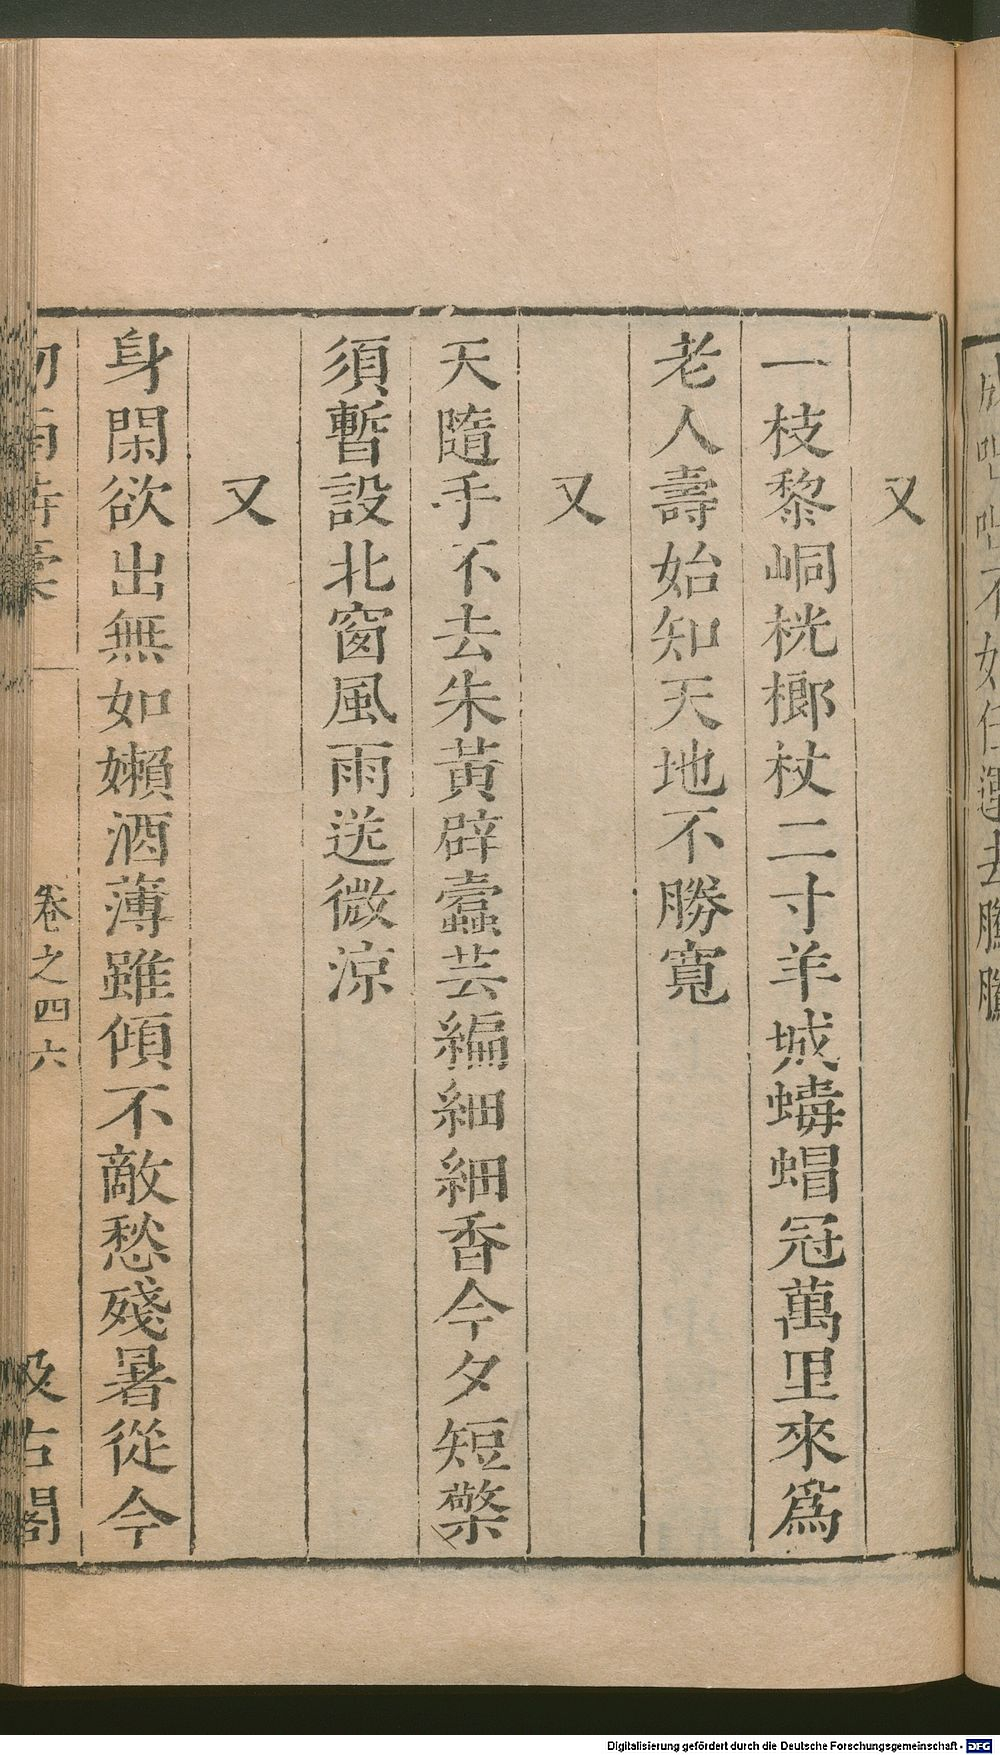 又
一枝黎峒桄榔杖二寸羊城蟕蝐冠萬里來爲
老人壽始知天地不勝寬
又
天隨手不去朱黃辟蠹芸編細細香今夕短檠
須暫設北窗風雨送微涼
又
身閑欲出無如嬾酒薄雖傾不敵愁殘暑從今
卷之四 六
汲古閣
不如任運去騰騰
Digitalisierung gefördert durch die Deutsche Forschungsgemeinschaft - DFG